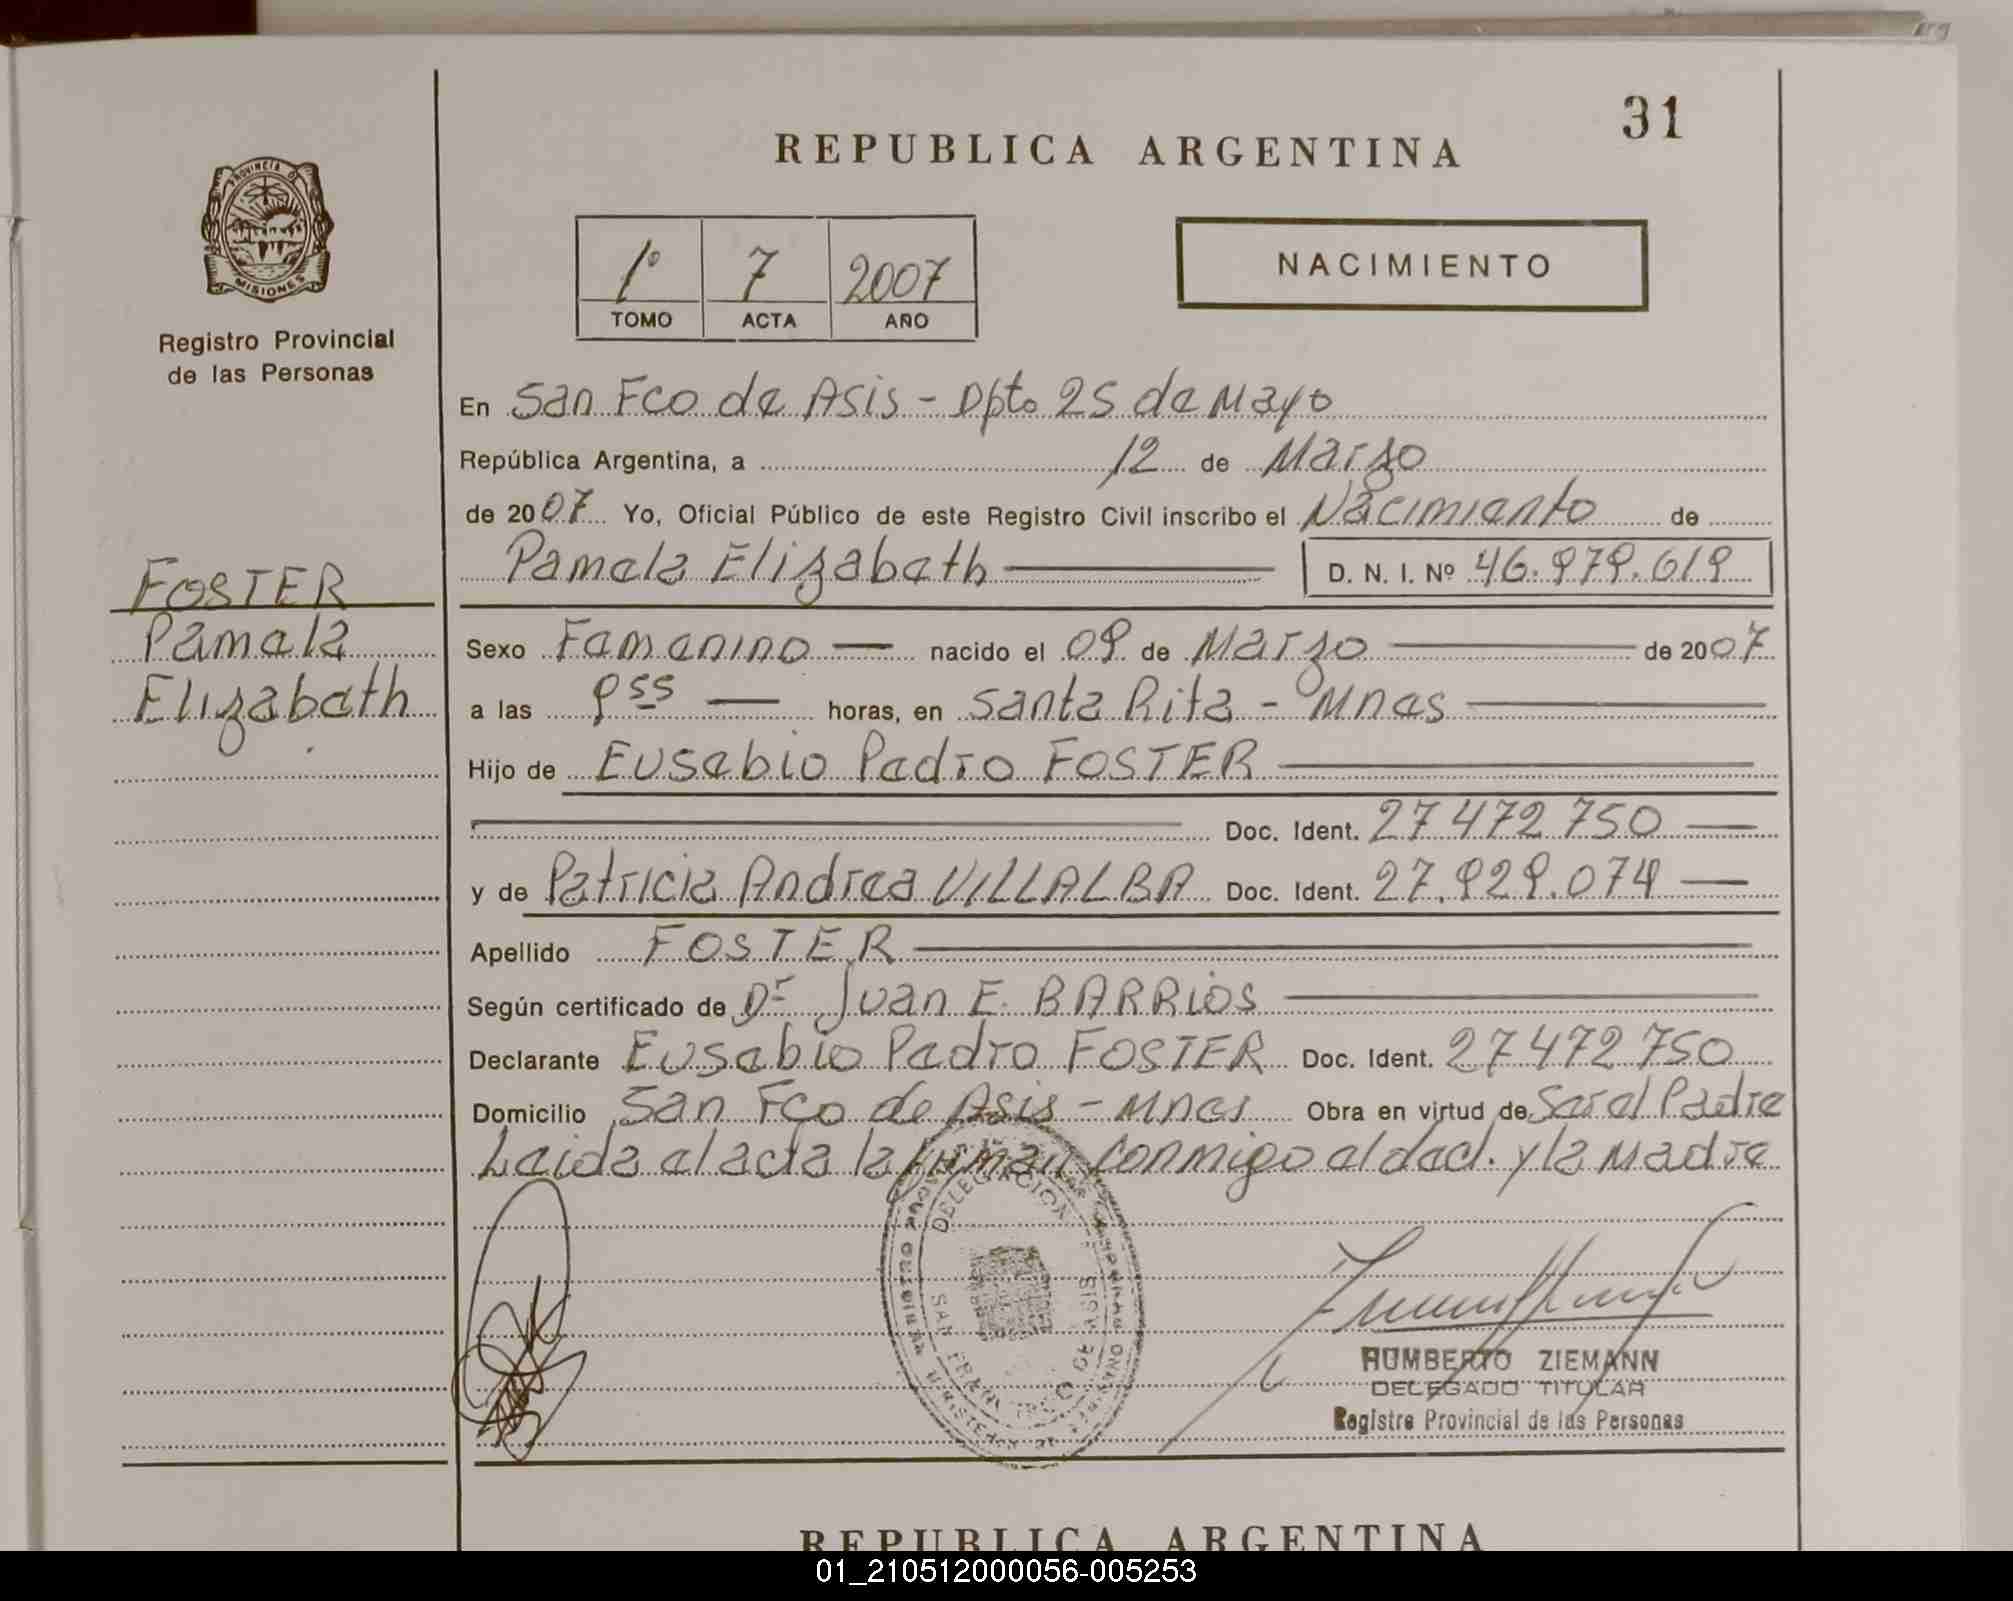 31
REPUBLICA ARGENTINA
PROVINCIA D
MISIONES
Registro Provincial
de las Personas
1º 7 2007
TOMO ACTA AÑO
NACIMIENTO
En San Fco de Asis - Dpto 25 de Mayo
República Argentina, a 12 de Marzo
de 2007 Yo, Oficial Público de este Registro Civil inscribo el Nacimiento de
Pamela Elizabeth D. N. I. Nº 46.979.619
FOSTER
Pamela
Elizabeth
Sexo Femenino nacido el 09 de Marzo de 2007
a las 9 55 horas, en Santa Rita - Mnes
Hijo de Eusebio Pedro FOSTER
Doc. Ident. 27 472 750
y de Patricia Andrea VILLALBA Doc. Ident. 27.929.074
Apellido FOSTER
Según certificado de Dr Juan E. BARRIOS
Declarante Eusebio Pedro FOSTER Doc. Ident. 27 472 750
Domicilio San Fco de Asis - Mnes Obra en virtud de Ser el Padre
Leida el acta la firman conmigo el dec. y la Madre
DELEGACION
SAN FRANCISCO DE ASIS
HUMBERTO ZIEMANN
DELEGADO TITULAR
Registro Provincial de las Personas
REPUBLICA ARGENTINA
01_210512000056-005253